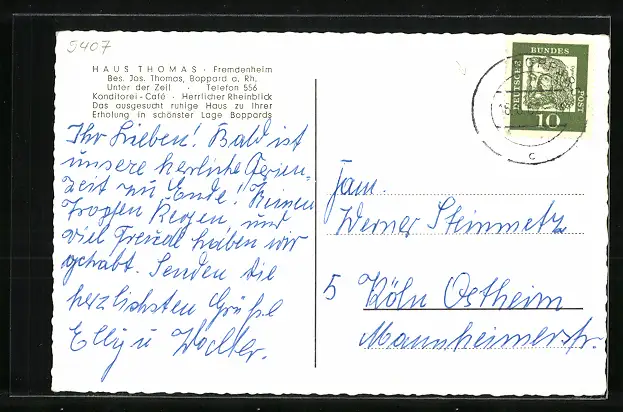 5407
HAUS THOMAS · Fremdenheim
Bes. Jos. Thomas, Boppard a. Rh.
Unter der Zeil · Telefon 556
Konditorei - Café · Herrlicher Rheinblick
Das ausgesucht ruhige Haus zu Ihrer
Erholung in schönster Lage Boppards
Ihr Lieben! Bald ist
unsere herrliche Ferien-
zeit zu Ende! Keinen
Tropfen Regen, und
viel Freude haben wir
gehabt. Senden die
herzlichsten Grüße
Elly u
DEUTSCHE BUNDESPOST
10
c
Fam.
Werner Steinmetz
5 Köln Ostheim
Mannheimerstr.